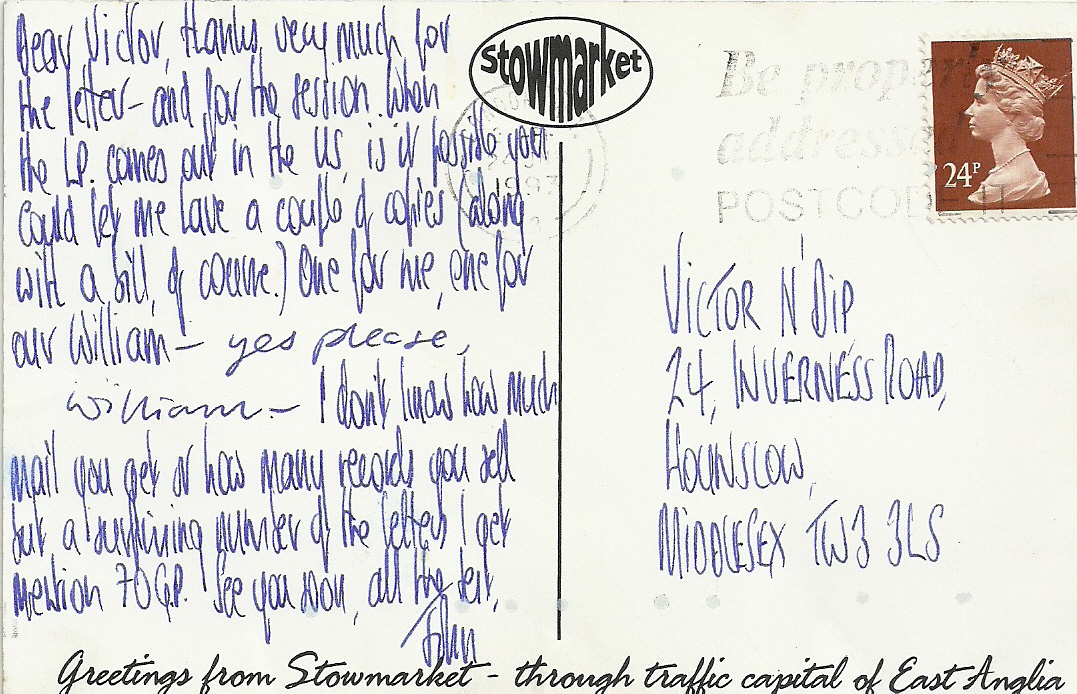 Dear Victor, thanks very much for
the letter – and for the session. When
the LP. comes out in the US, is it possible you
could let me have a couple of copies (along
with a bill, of course.) One for me, one for
our William – yes please,
William – I don't know how much
mail you get or how many records you sell
but a surprising number of the letters I get
mention 70GP. See you soon, all the best,
John
Stowmarket
1993
Be properly
addressed
POSTCODE IT
24P
VICTOR N'DIP
24, INVERNESS ROAD,
HOUNSLOW,
MIDDLESEX TW3 3LS
Greetings from Stowmarket - through traffic capital of East Anglia